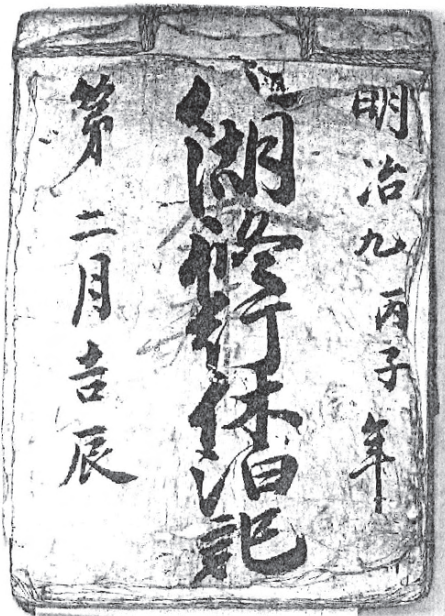 明治九丙子年
湖修行休泊記
第二月吉辰